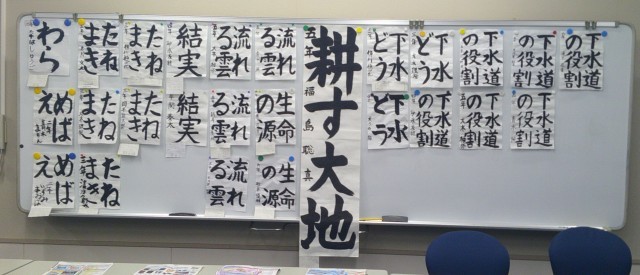 下水道
の役割
下水道
の役割
下水道
の役割
下水
どう
下水
どう
下水道
の役割
下水道
の役割
下水道
の役割
下水
どう
耕す大地
五年 福島聡真
流れ
る雲
流れ
る雲
結実
たね
まき
たね
まき
わら
生命
の源
流れ
る雲
結実
たね
まき
たね
まき
めば
え
生命
の源
流れ
る雲
たね
まき
めば
え